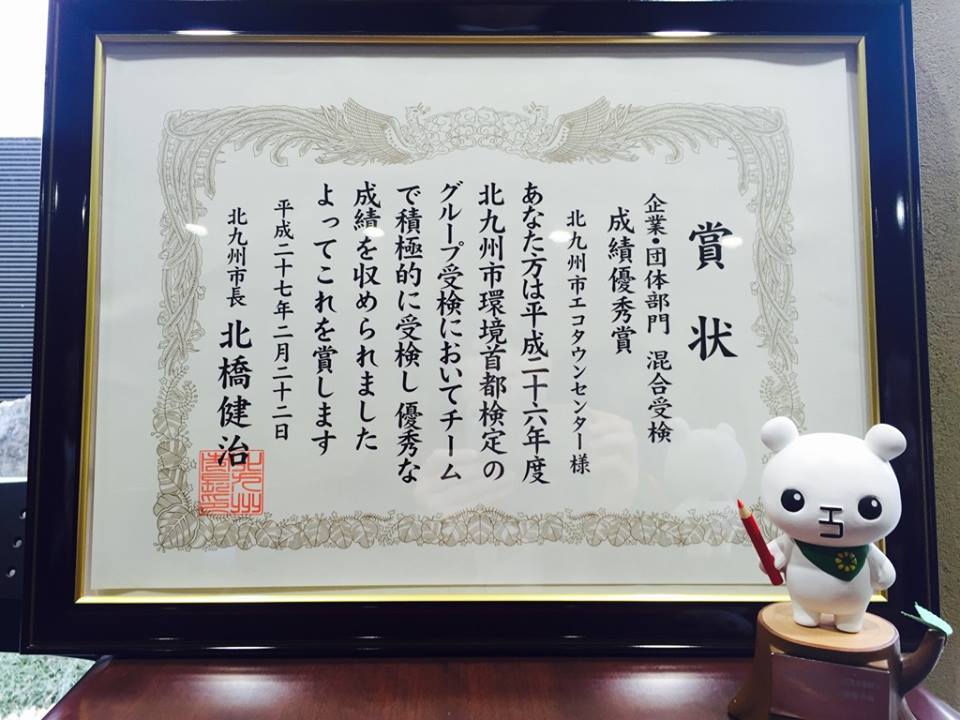 賞状
企業・団体部門 混合受検
成績優秀賞
北九州市エコタウンセンター様
あなた方は平成二十六年度
北九州市環境首都検定の
グループ受検においてチーム
で積極的に受検し優秀な
成績を収められました
よってこれを賞します
平成二十七年二月二十二日
北九州市長 北橋健治
エコ